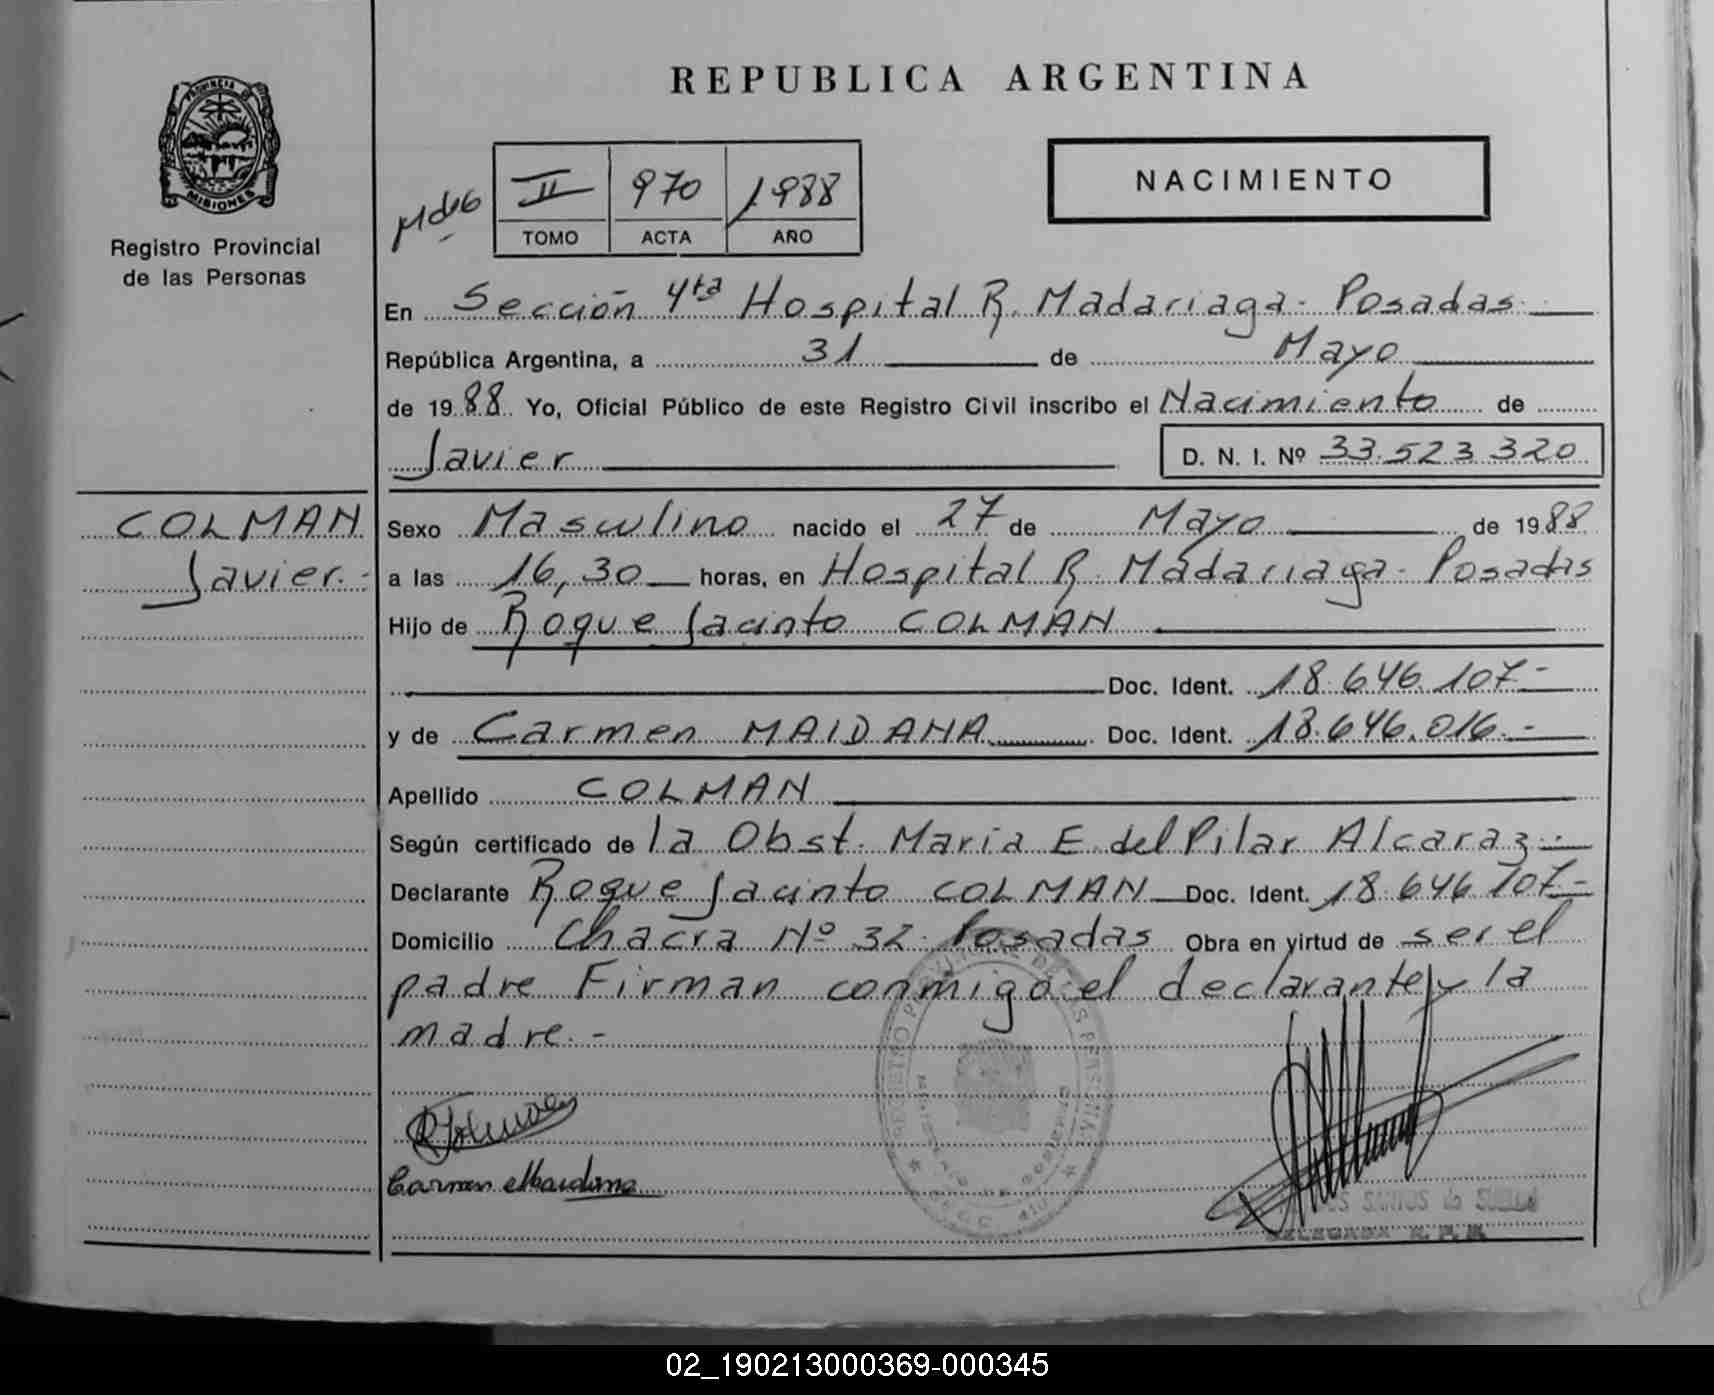 REPUBLICA ARGENTINA
PROVINCIA DE
MISIONES
Registro Provincial
de las Personas
II 970 1988
TOMO ACTA AÑO
NACIMIENTO
En Sección 4ta Hospital R. Madariaga- Posadas
República Argentina, a 31 de Mayo
de 1988 Yo, Oficial Público de este Registro Civil inscribo el Nacimiento de
Javier D. N. I. Nº 33.523.320
COLMAN
Javier.-
Sexo Masculino nacido el 27 de Mayo de 1988
a las 16,30 horas, en Hospital R. Madariaga- Posadas
Hijo de Roque Jacinto COLMAN
Doc. Ident. 18.646.107-
y de Carmen MAIDANA Doc. Ident. 18.646.016.-
Apellido COLMAN
Según certificado de la Obst. Maria E. del Pilar Alcaraz.-
Declarante Roque Jacinto COLMAN Doc. Ident. 18.646.107-
Domicilio Chacra Nº 32- Posadas Obra en virtud de ser el
padre Firman conmigo el declarante y la
madre.-
REGISTRO PROVINCIAL DE LAS PERSONAS
Carmen Maidana
DELEGADA R. P. P.
02_190213000369-000345